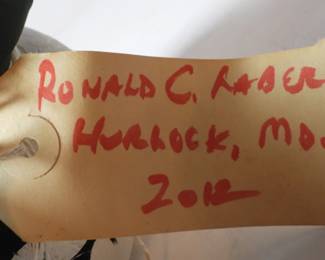 RONALD C. RABER
HURLOCK, MD.
2012